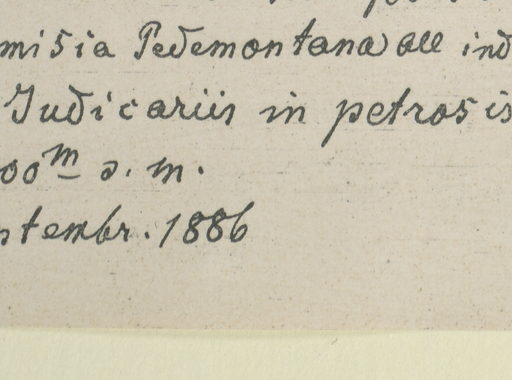 misia Pedemontana all ind
Judicariis in petrosis
00m s. m.
ptembr. 1886